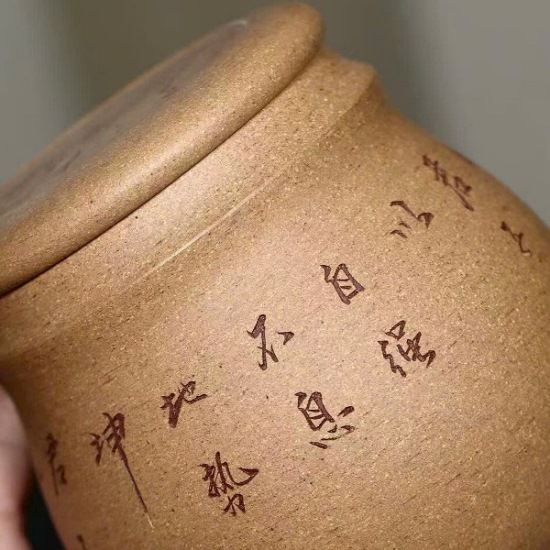 君子
以
自强
不息
地勢
坤
君